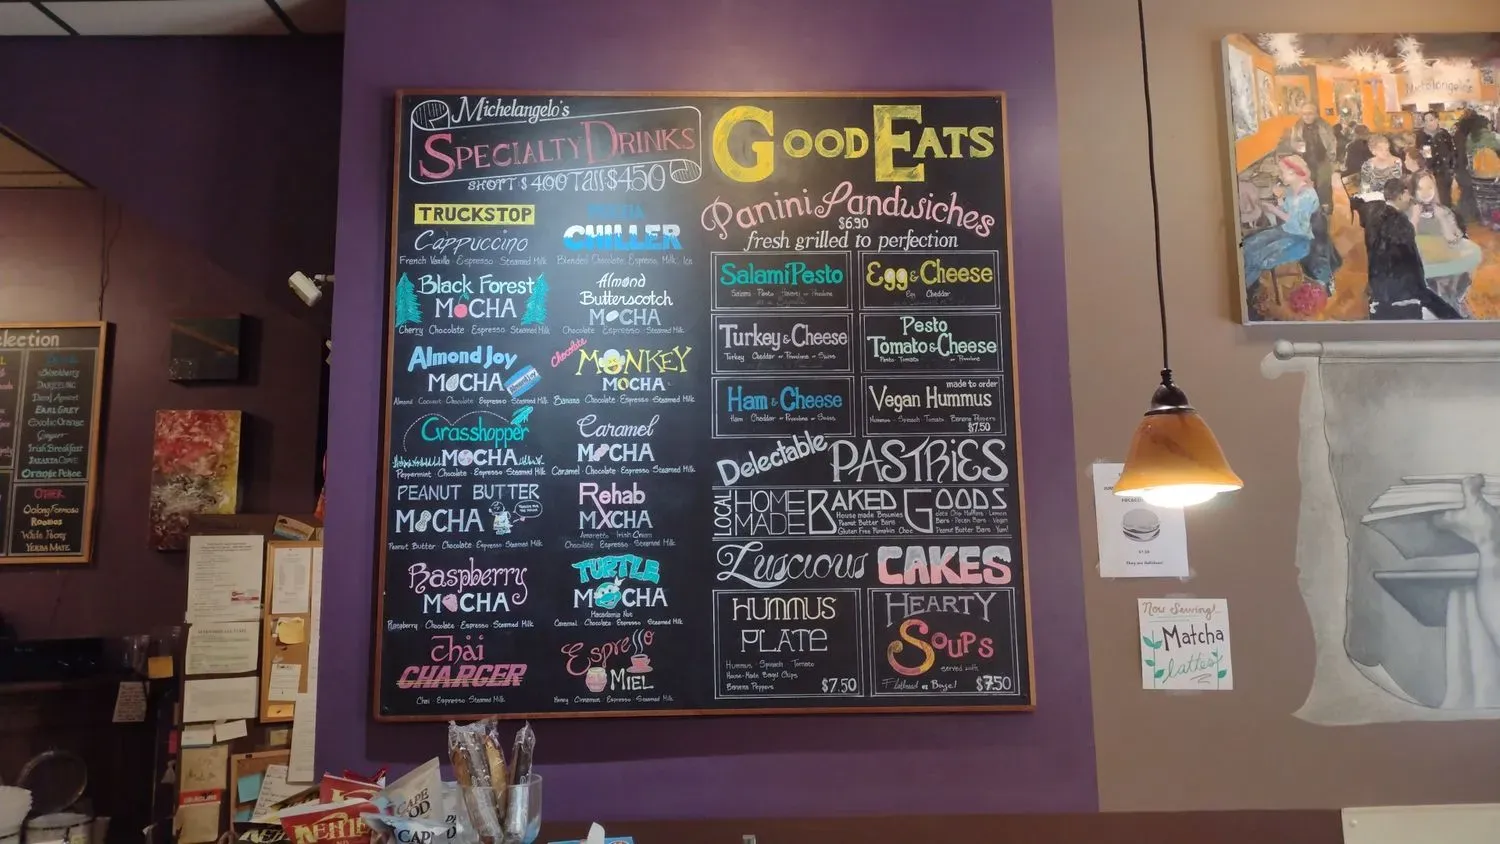 Michelangelo's
SPECIALTY DRINKS
SHORT $4.00 Tall $4.50
TRUCKSTOP
Cappuccino
French Vanilla Espresso Steamed Milk
Black Forest
MOCHA
Cherry Chocolate Espresso Steamed Milk
Almond Joy
MOCHA
Almond Coconut Chocolate Espresso Steamed Milk
Grasshopper
MOCHA
Peppermint Chocolate Espresso Steamed Milk
PEANUT BUTTER
MOCHA
Peanut Butter Chocolate Espresso Steamed Milk
Raspberry
MOCHA
Raspberry Chocolate Espresso Steamed Milk
Chai
CHARGER
Chai Espresso Steamed Milk
CHILLER
Blended Chocolate, Espresso, Milk, Ice
Almond
Butterscotch
MOCHA
Chocolate Espresso Steamed Milk
Chocolate
MONKEY
MOCHA
Banana Chocolate Espresso Steamed Milk
Caramel
MOCHA
Caramel Chocolate Espresso Steamed Milk
Rehab
MXCHA
Amaretto Irish Cream
Chocolate Espresso Steamed Milk
TURTLE
MOCHA
Macadamia Nut
Caramel Chocolate Espresso Steamed Milk
Espresso
MIEL
Honey Cinnamon Espresso Steamed Milk
GOOD EATS
Panini Sandwiches
$6.90
fresh grilled to perfection
Salami Pesto
Salami Pesto Havarti or Provolone
Egg & Cheese
Egg Cheddar
Turkey & Cheese
Turkey Cheddar or Provolone or Swiss
Pesto
Tomato & Cheese
Pesto Tomato or Provolone
Ham & Cheese
Ham Cheddar or Provolone or Swiss
made to order
Vegan Hummus
Hummus Spinach Tomato Banana Peppers
$7.50
Delectable PASTRIES
LOCAL HOME MADE BAKED GOODS
House made Brownies
Peanut Butter Bars
Gluten Free Pumpkin Choc
Bars Pecan Bars Vegan
Peanut Butter Bars Yum!
Luscious CAKES
HUMMUS
PLATE
Hummus Spinach Tomato
House-Made Bagel Chips
Banana Peppers
$7.50
HEARTY
SOUPS
served with
Flatbread or Bagel $7.50
election
Blackberry
DARJEELING
EARL GREY
Exotic Orange
Ginger
Irish Breakfast
Orange Pekoe
OTHER
Oolong Formosa
Rooibos
White Peony
YERBA MATE
Michelangelo's
Now Serving!
Matcha
lattes
CAPE
COD
CAPE
KETTLE